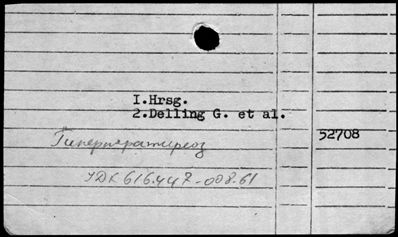 I.Hrsg.
2.Delling G. et al.
52708
Гиперпаратиреоз
УДК 616.447-008.61